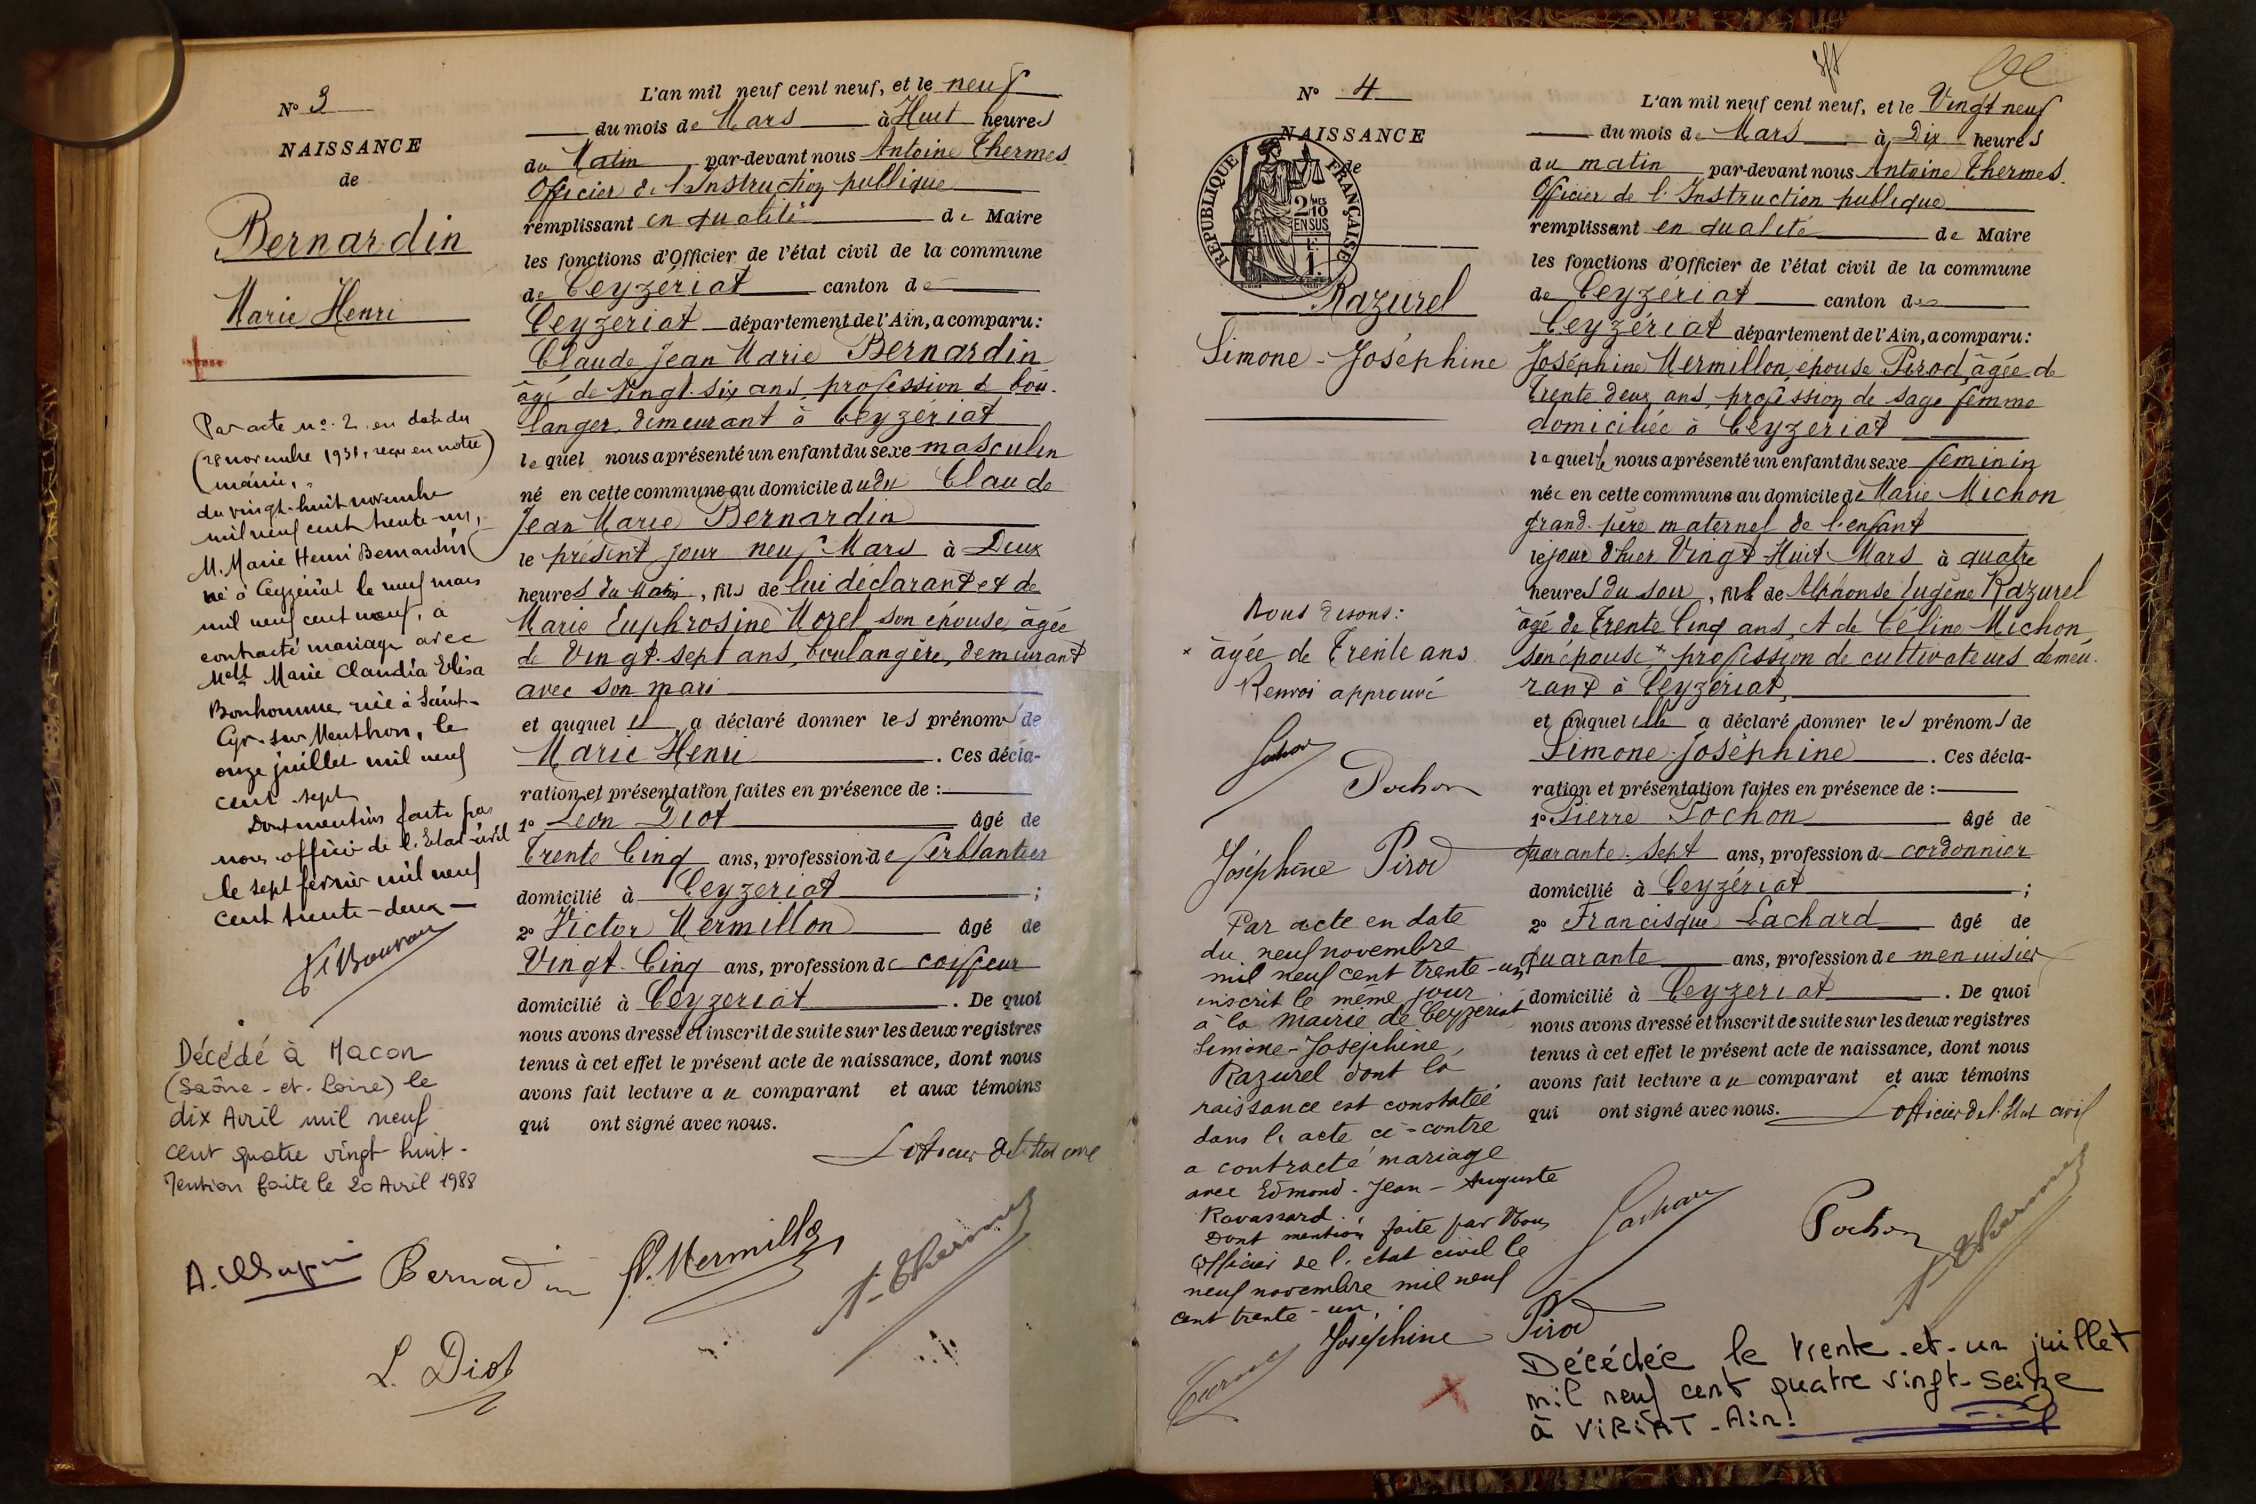 Nº 3
NAISSANCE
de
Bernardin
Marie Henri
Par acte nº 2 en date du
(28 novembre 1931, reçu en notre)
(mairie,
du vingt-huit novembre
mil neuf cent trente-un,
M. Marie Henri Bernardin
né à Ceyzériat le neuf mars
mil neuf cent neuf, a
contracté mariage avec
Melle Marie Claudia Elisa
Bonhomme née à Saint-
Cyr-sur Menthon, le
onze juillet mil neuf
cent sept
Dont mention faite par
nous officier de l'Etat-civil
le sept février mil neuf
cent trente-deux
Décédé à Macon
(Saône-et-Loire) le
dix Avril mil neuf
cent quatre vingt-huit.
Mention faite le 20 Avril 1988
L'an mil neuf cent neuf, et le neuf
du mois de Mars à Huit heures
du Matin par-devant nous Antoine Thermes
Officier de l'Instruction publique
remplissant en qualité de Maire
les fonctions d'Officier de l'état civil de la commune
de Ceyzériat canton de
Ceyzériat département de l'Ain, a comparu:
Claude Jean Marie Bernardin
âgé de Vingt-six ans, profession d bou-
langer, demeurant à Ceyzériat
lequel nous a présenté un enfant du sexe masculin
né en cette commune au domicile dudu Claude
Jean Marie Bernardin
le présent jour neuf Mars à Deux
heures du Matin, fils de lui déclarant et de
Marie Euphrosine Morel son épouse, âgée
de Vingt-sept ans, boulangère, demeurant
avec son mari
et auquel il a déclaré donner les prénoms de
Marie Henri. Ces décla-
ration et présentation faites en présence de :
1º Léon Diot âgé de
Trente Cinq ans, profession de ferblantier
domicilié à Ceyzeriat ;
2º Victor Mermillon âgé de
Vingt-Cinq ans, profession de coiffeur
domicilié à Ceyzeriat. De quoi
nous avons dressé et inscrit de suite sur les deux registres
tenus à cet effet le présent acte de naissance, dont nous
avons fait lecture au comparant et aux témoins
qui ont signé avec nous.
L'officier de l'Etat civil
Bernadin
V. Mermillon
A. Thermes
L. Diot
Nº 4
NAISSANCE
de
RÉPUBLIQUE FRANÇAISE
2/10 MES
EN SUS
Razurel
Simone-Joséphine
Nous disons:
× âgée de Trente ans
Renvoi approuvé
Pochon
Joséphine Pirod
Par acte en date
du neuf novembre
mil neuf cent trente-un
inscrit le même jour
à la mairie de Ceyzeriat,
Simone-Joséphine,
Razurel dont la
naissance est constatée
dans l'acte ci-contre
a contracté mariage
avec Edmond-Jean-Auguste
Ravassard.
Dont mention faite par Nous
Officier de l'état civil le
neuf novembre mil neuf
cent trente-un.
L'an mil neuf cent neuf, et le Vingt neuf
du mois de Mars à Dix heures
du matin par-devant nous Antoine Thermes
Officier de l'Instruction publique
remplissant en qualité de Maire
les fonctions d'Officier de l'état civil de la commune
de Ceyzeriat canton de
Ceyzériat département de l'Ain, a comparu:
Joséphine Mermillon, épouse Pirod, âgée de
Trente deux ans, profession de sage femme
domiciliée à Ceyzeriat
laquelle nous a présenté un enfant du sexe féminin
née en cette commune au domicile de Marie Michon
grand-père maternel de l'enfant
le jour d'hier Vingt-Huit Mars à quatre
heures du soir, fille de Alphonse Eugène Razurel
âgé de Trente Cinq ans, et de Céline Michon
son épouse × profession de cultivateurs demeu-
rant à Ceyzériat,
et auquel elle a déclaré donner les prénoms de
Simone-Joséphine. Ces décla-
ration et présentation faites en présence de :
1º Pierre Pochon âgé de
quarante-sept ans, profession de cordonnier
domicilié à Ceyzériat ;
2º Francisque Lachard âgé de
quarante ans, profession de menuisier
domicilié à Ceyzeriat. De quoi
nous avons dressé et inscrit de suite sur les deux registres
tenus à cet effet le présent acte de naissance, dont nous
avons fait lecture au comparant et aux témoins
qui ont signé avec nous. L'officier de l'Etat civil
Lachard
Pochon
A. Thermes
Joséphine Pirod
Décédée le trente-et-un juillet
mil neuf cent quatre vingt-seize
à VIRIAT-Ain.